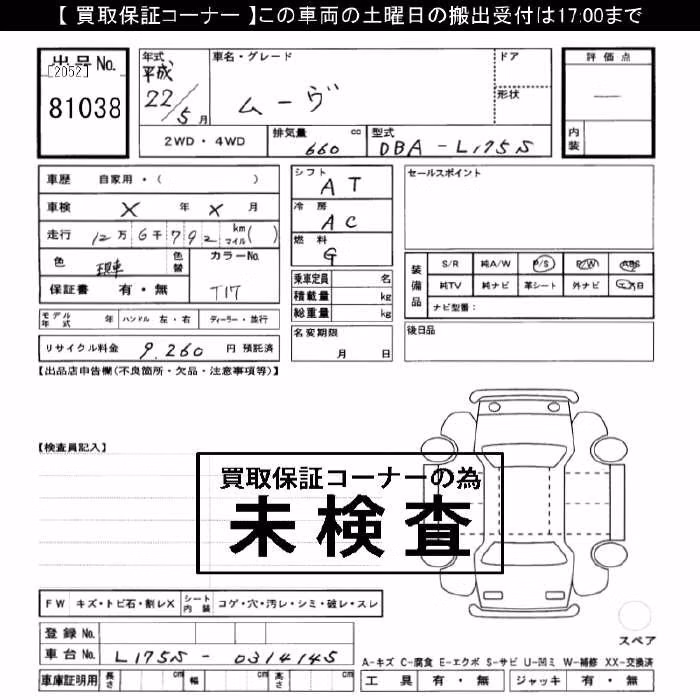 【 買取保証コーナー 】この車両の土曜日の搬出受付は17:00まで
出品No.
[2052]
81038
年式
平成
22/5月
車名・グレード
ムーヴ
ドア
形状
評価点
内装
2WD・4WD
排気量 660 cc
型式 DBA - L175S
車歴 自家用・( )
車検 X 年 X 月
走行 12万6千792 km マイル( )
色 現車 色替
カラーNo. T17
保証書 有・無
モデル年式 年 ハンドル 左・右 ディーラー・並行
リサイクル料金 9,260 円 預託済
シフト AT
冷房 AC
燃料 G
乗車定員 名
積載量 kg
総重量 kg
名変期限 月 日
セールスポイント
装備品
S/R 純A/W P/S P/W ABS
純TV 純ナビ 革シート 外ナビ
ナビ型番:
後日品
【出品店申告欄(不良箇所・欠品・注意事項等)】
【検査員記入】
買取保証コーナーの為
未検査
FW キズ・トビ石・割レX シート内装 コゲ・穴・汚レ・シミ・破レ・スレ
スペア
登録No.
車台No. L175S - 0314145
車庫証明用 長さ cm 幅 cm 高さ cm
A-キズ C-腐食 E-エクボ S-サビ U-凹ミ W-補修 XX-交換済
工具 有・無 ジャッキ 有・無